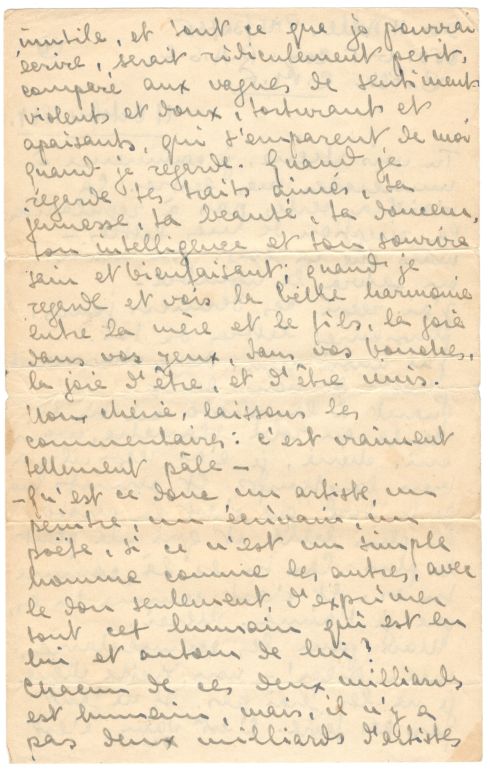 inutile, et tout ce que je pourrai
écrire, serait ridiculement petit,
comparé aux vagues de sentiments
violents et doux, torturants et
apaisants, qui s'emparent de moi
quand je regarde. Quand je
regarde tes traits aimés, ta
jeunesse, ta beauté, ta douceur,
ton intelligence et ton sourire
sain et bienfaisant; quand je
regarde et vois la belle harmonie
entre la mère et le fils, la joie
dans vos yeux, dans vos bouches,
la joie d'être, et d'être unis.
Non, chérie, laissons les
commentaires: c'est vraiment
tellement pâle —
— Qu'est ce donc un artiste, un
peintre, un écrivain, un
poëte, si ce n'est un simple
homme comme les autres, avec
le don seulement, d'exprimer
tout cet humain qui est en
lui et autour de lui?
Chacun de ces deux milliards
est humain, mais, il n'y a
pas deux milliards d'artistes